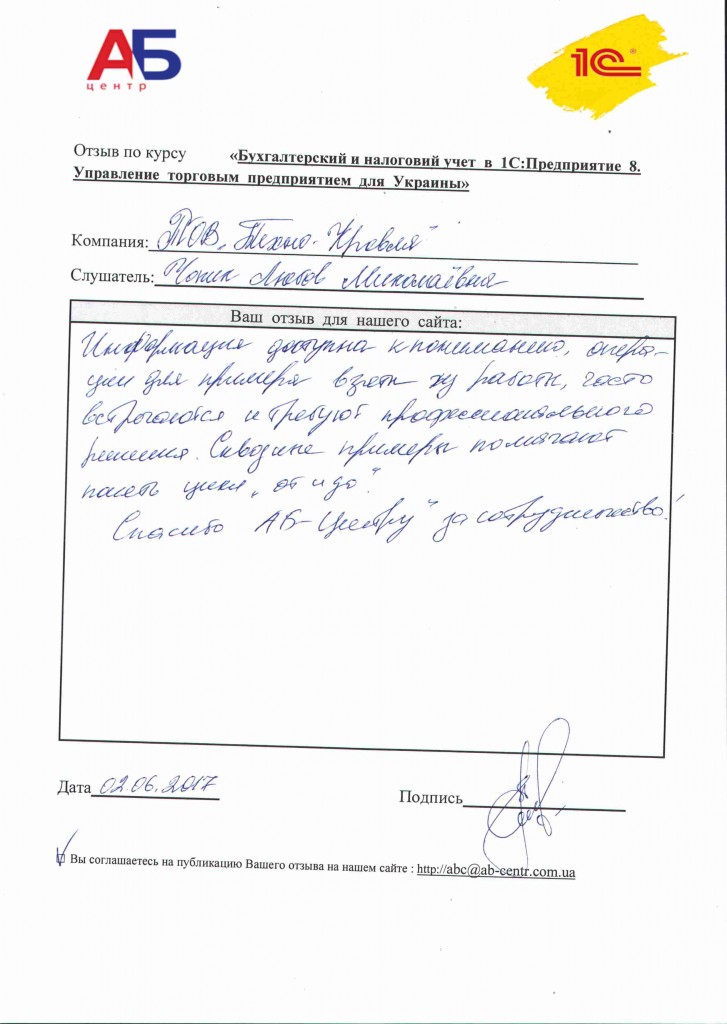 АБ
центр
1С
Отзыв по курсу «Бухгалтерский и налоговий учет в 1С:Предприятие 8.
Управление торговым предприятием для Украины»
Компания: ТОВ „Техно-Кровля"
Слушатель: Чопик Любов Миколаївна
Ваш отзыв для нашего сайта:
Информация доступна к пониманию, опера-
ции для примера взяти из работи, часто
встречаются и требуют профессионального
решения. Сквозние примеры помагают
понять цикл „от и до".
Спасибо АБ-Центру" за сотрудничество!
Дата 02.06.2017
Подпись
Вы соглашаетесь на публикацию Вашего отзыва на нашем сайте : http://abc@ab-centr.com.ua